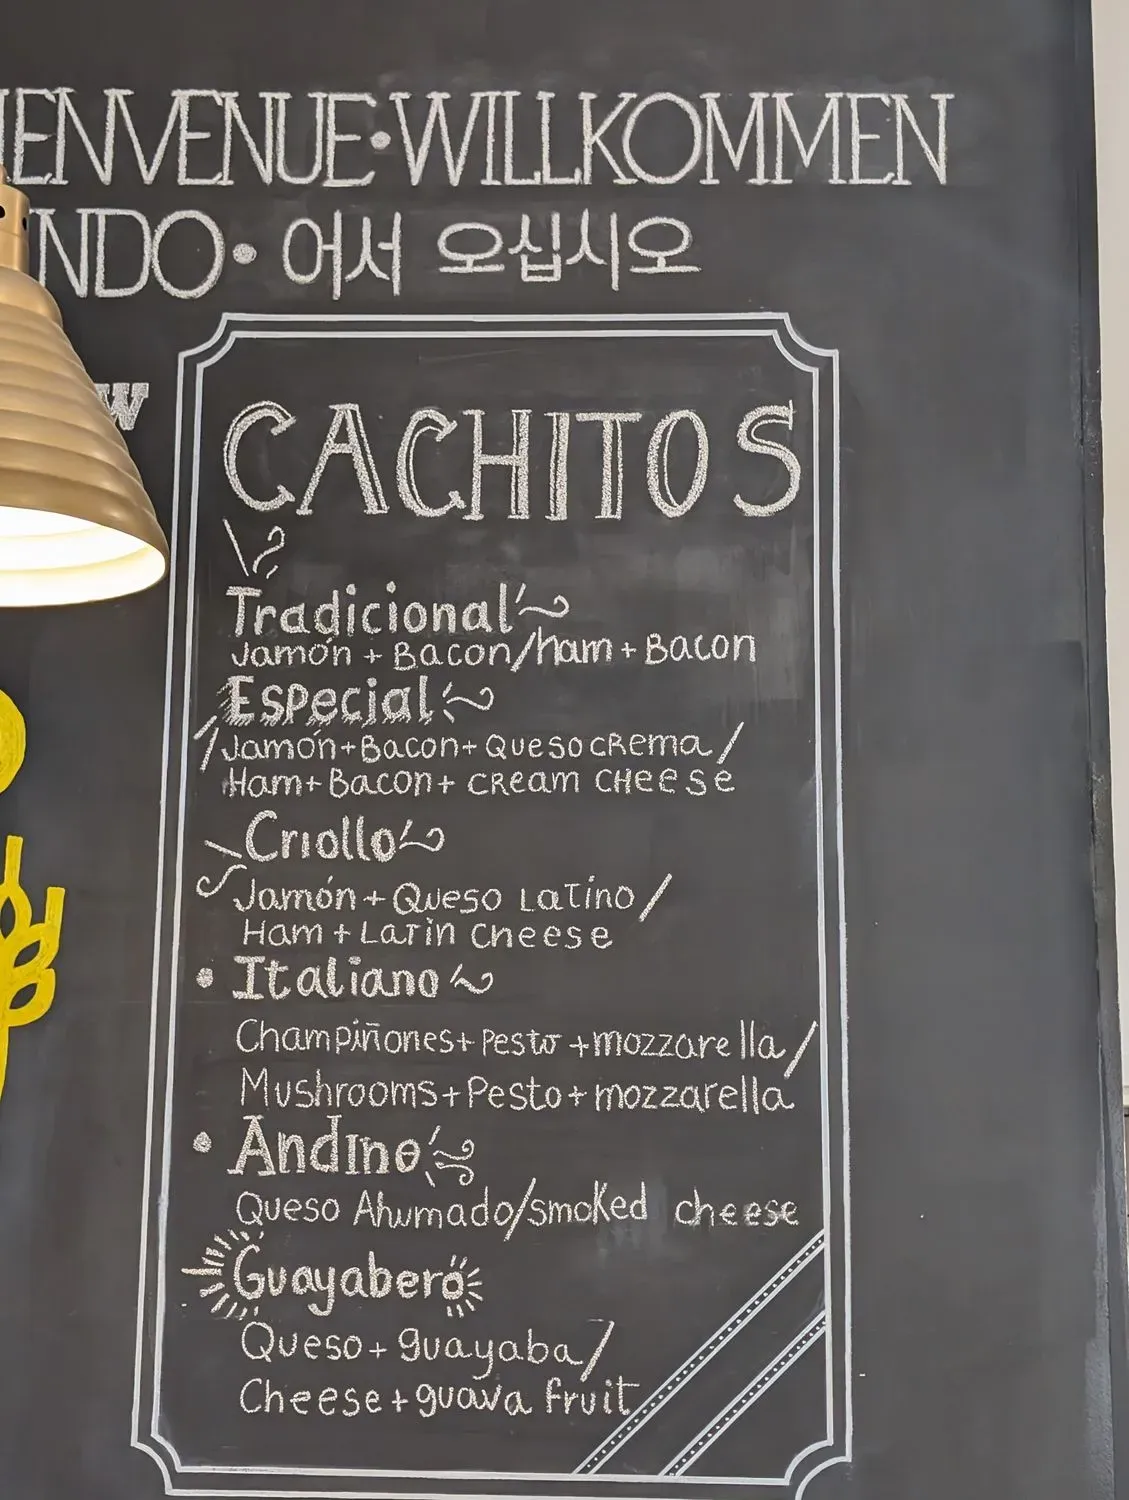 IENVENUE • WILLKOMMEN
NDO • 어서 오십시오
W
CACHITOS
Tradicional
Jamón + Bacon/ham + Bacon
Especial
Jamón + Bacon + Queso crema /
Ham + Bacon + cream cheese
Criollo
Jamón + Queso Latino /
Ham + Latin cheese
• Italiano
Champiñones + pesto + mozzarella /
Mushrooms + Pesto + mozzarella
• Andino
Queso Ahumado/smoked cheese
Guayabero
Queso + guayaba /
Cheese + guava fruit